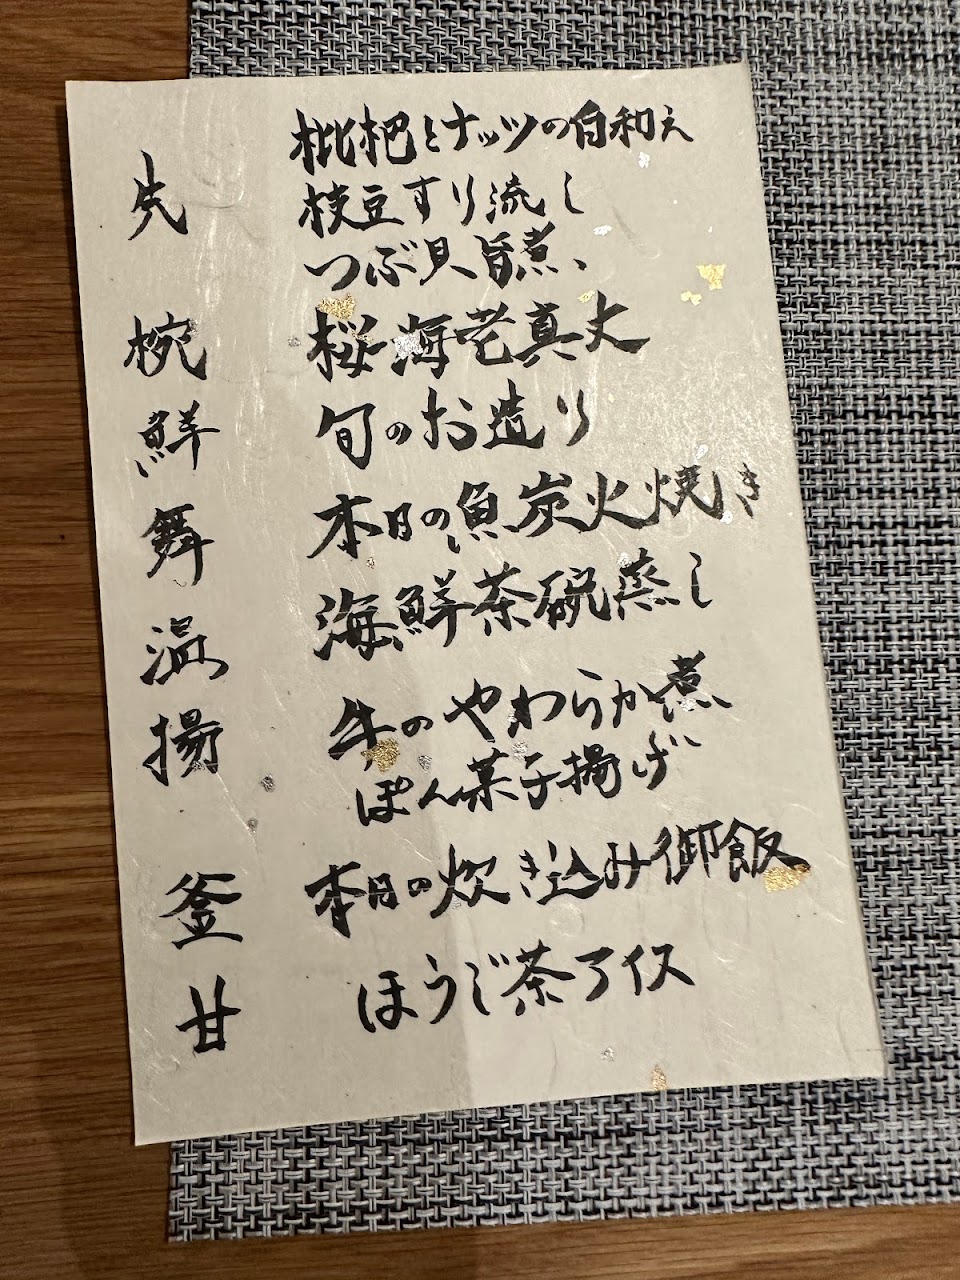 先 枇杷とナッツの白和え
枝豆すり流し
つぶ貝旨煮
椀 桜海老真丈
鮮 旬のお造り
舞 本日の魚炭火焼き
温 海鮮茶碗蒸し
揚 牛のやわらか煮
ぽん菓子揚げ
釜 本日の炊き込み御飯
甘 ほうじ茶アイス